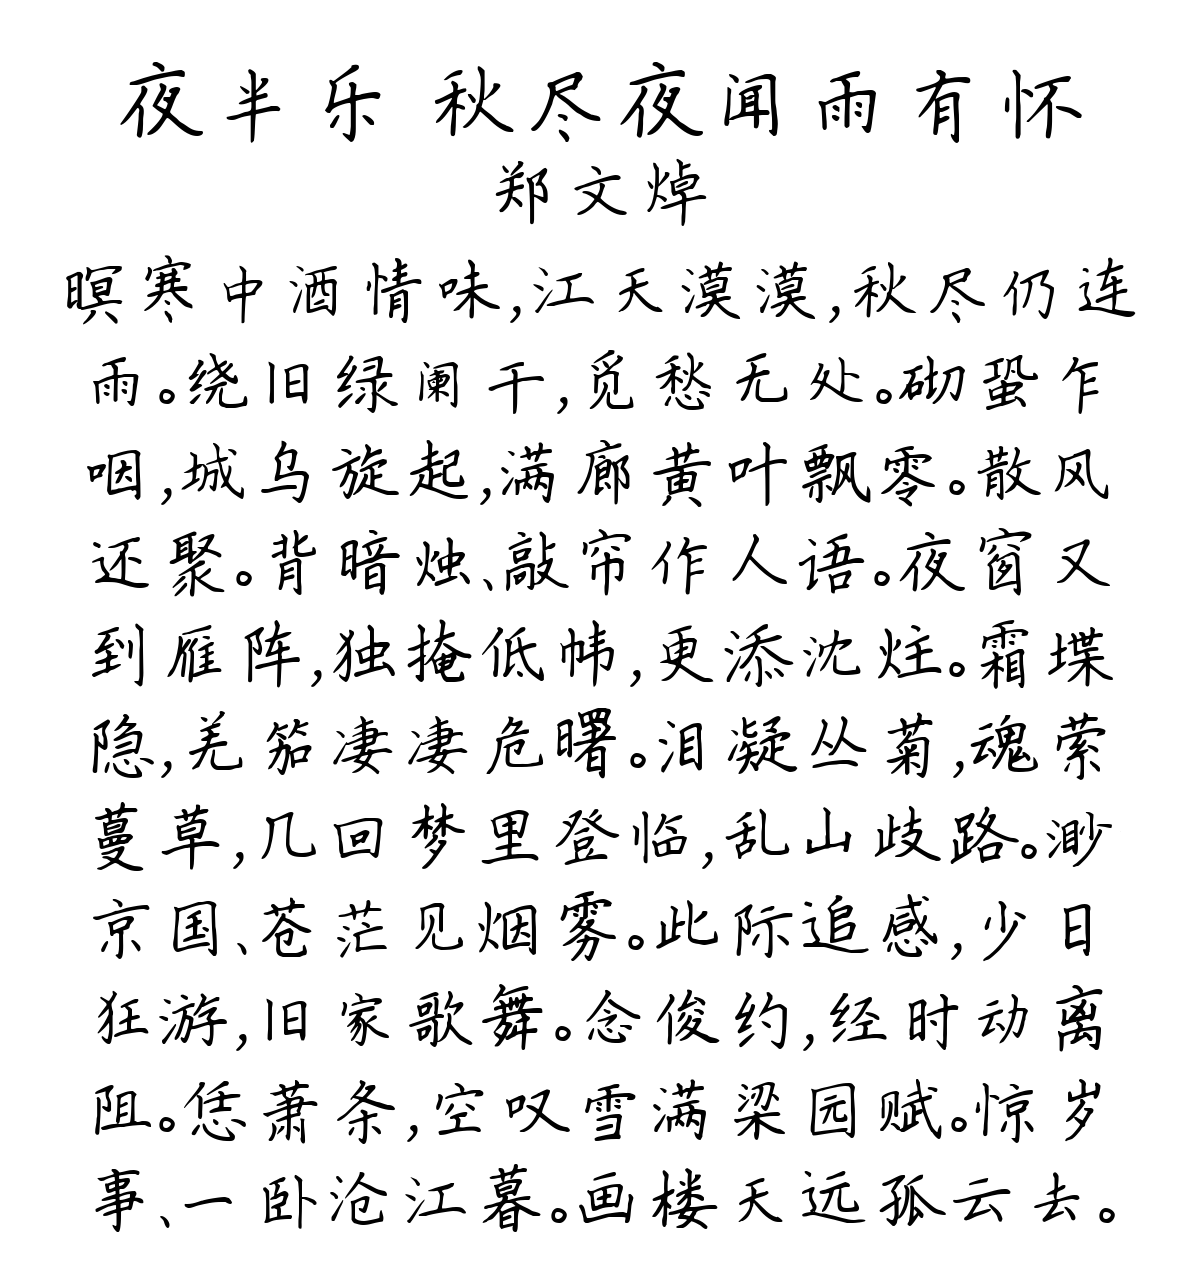 夜半乐 秋尽夜闻雨有怀
郑文焯
暝寒中酒情味,江天漠漠,秋尽仍连
雨。绕旧绿阑干,觅愁无处。砌蛩乍
咽,城乌旋起,满廊黄叶飘零。散风
还聚。背暗烛、敲帘作人语。夜窗又
到雁阵,独掩低帏,更添沈炷。霜堞
隐,羌笳凄凄危曙。泪凝丛菊,魂萦
蔓草,几回梦里登临,乱山歧路。渺
京国、苍茫见烟雾。此际追感,少日
狂游,旧家歌舞。念俊约,经时动离
阻。恁萧条,空叹雪满梁园赋。惊岁
事、一卧沧江暮。画楼天远孤云去。